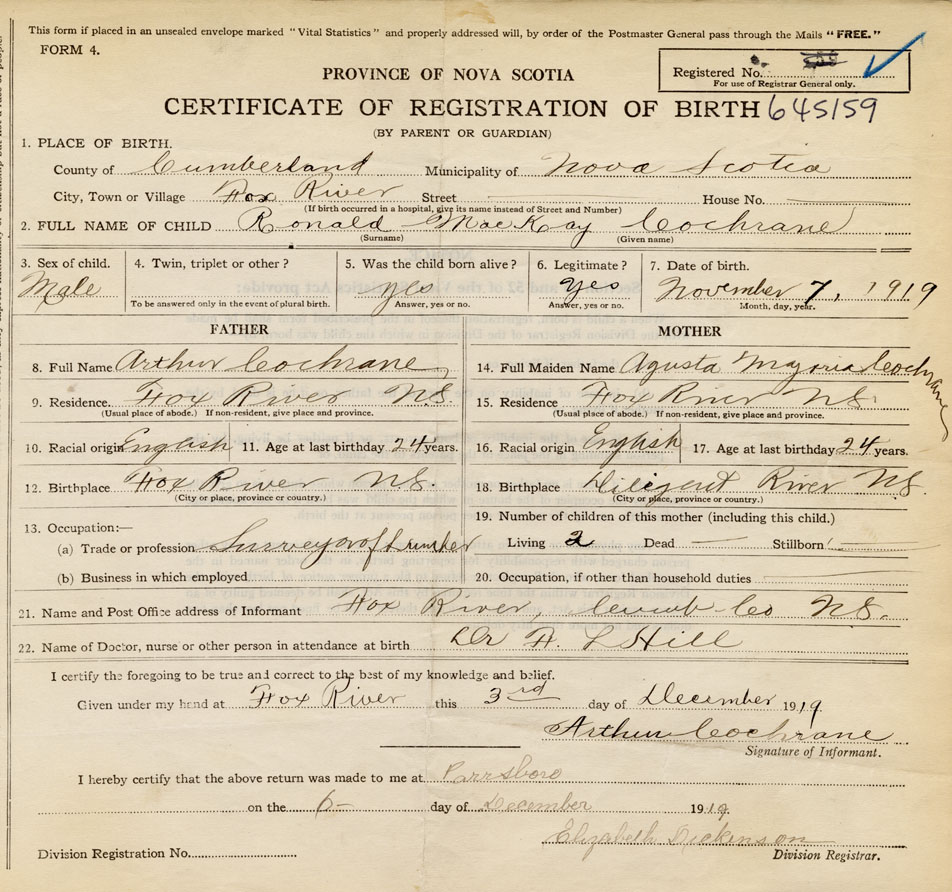 This form if placed in an unsealed envelope marked "Vital Statistics" and properly addressed will, by order of the Postmaster General pass through the Mails "FREE."
FORM 4.
Registered No.
For use of Registrar General only.
PROVINCE OF NOVA SCOTIA
CERTIFICATE OF REGISTRATION OF BIRTH 645159
(BY PARENT OR GUARDIAN)
1. PLACE OF BIRTH.
County of Cumberland Municipality of Nova Scotia
City, Town or Village Fox River Street House No.
(If birth occurred in a hospital, give its name instead of Street and Number)
2. FULL NAME OF CHILD Ronald MacKay Cochrane
(Surname) (Given name)
3. Sex of child. 4. Twin, triplet or other? 5. Was the child born alive? 6. Legitimate? 7. Date of birth.
Male yes yes November 7, 1919
To be answered only in the event of plural birth. Answer, yes or no. Answer, yes or no. Month, day, year.
FATHER MOTHER
8. Full Name Arthur Cochrane 14. Full Maiden Name Agusta Cochrane
9. Residence. Fox River NS. 15. Residence Fox River NS.
(Usual place of abode.) If non-resident, give place and province. (Usual place of abode.) If non-resident, give place and province.
10. Racial origin English 11. Age at last birthday 24 years. 16. Racial origin English 17. Age at last birthday 24 years.
12. Birthplace Fox River NS. 18. Birthplace Diligent River NS.
(City or place, province or country.) (City or place, province or country.)
13. Occupation:— 19. Number of children of this mother (including this child.)
(a) Trade or profession Surveyor of Lumber Living 2 Dead — Stillborn —
(b) Business in which employed 20. Occupation, if other than household duties
21. Name and Post Office address of Informant Fox River, Cumb. Co NS.
22. Name of Doctor, nurse or other person in attendance at birth Dr Hill
I certify the foregoing to be true and correct to the best of my knowledge and belief.
Given under my hand at Fox River this 3rd day of December 1919.
Arthur Cochrane
Signature of Informant.
I hereby certify that the above return was made to me at Parrsboro
on the 6- day of December 1919.
Elizabeth Dickinson
Division Registration No. Division Registrar.